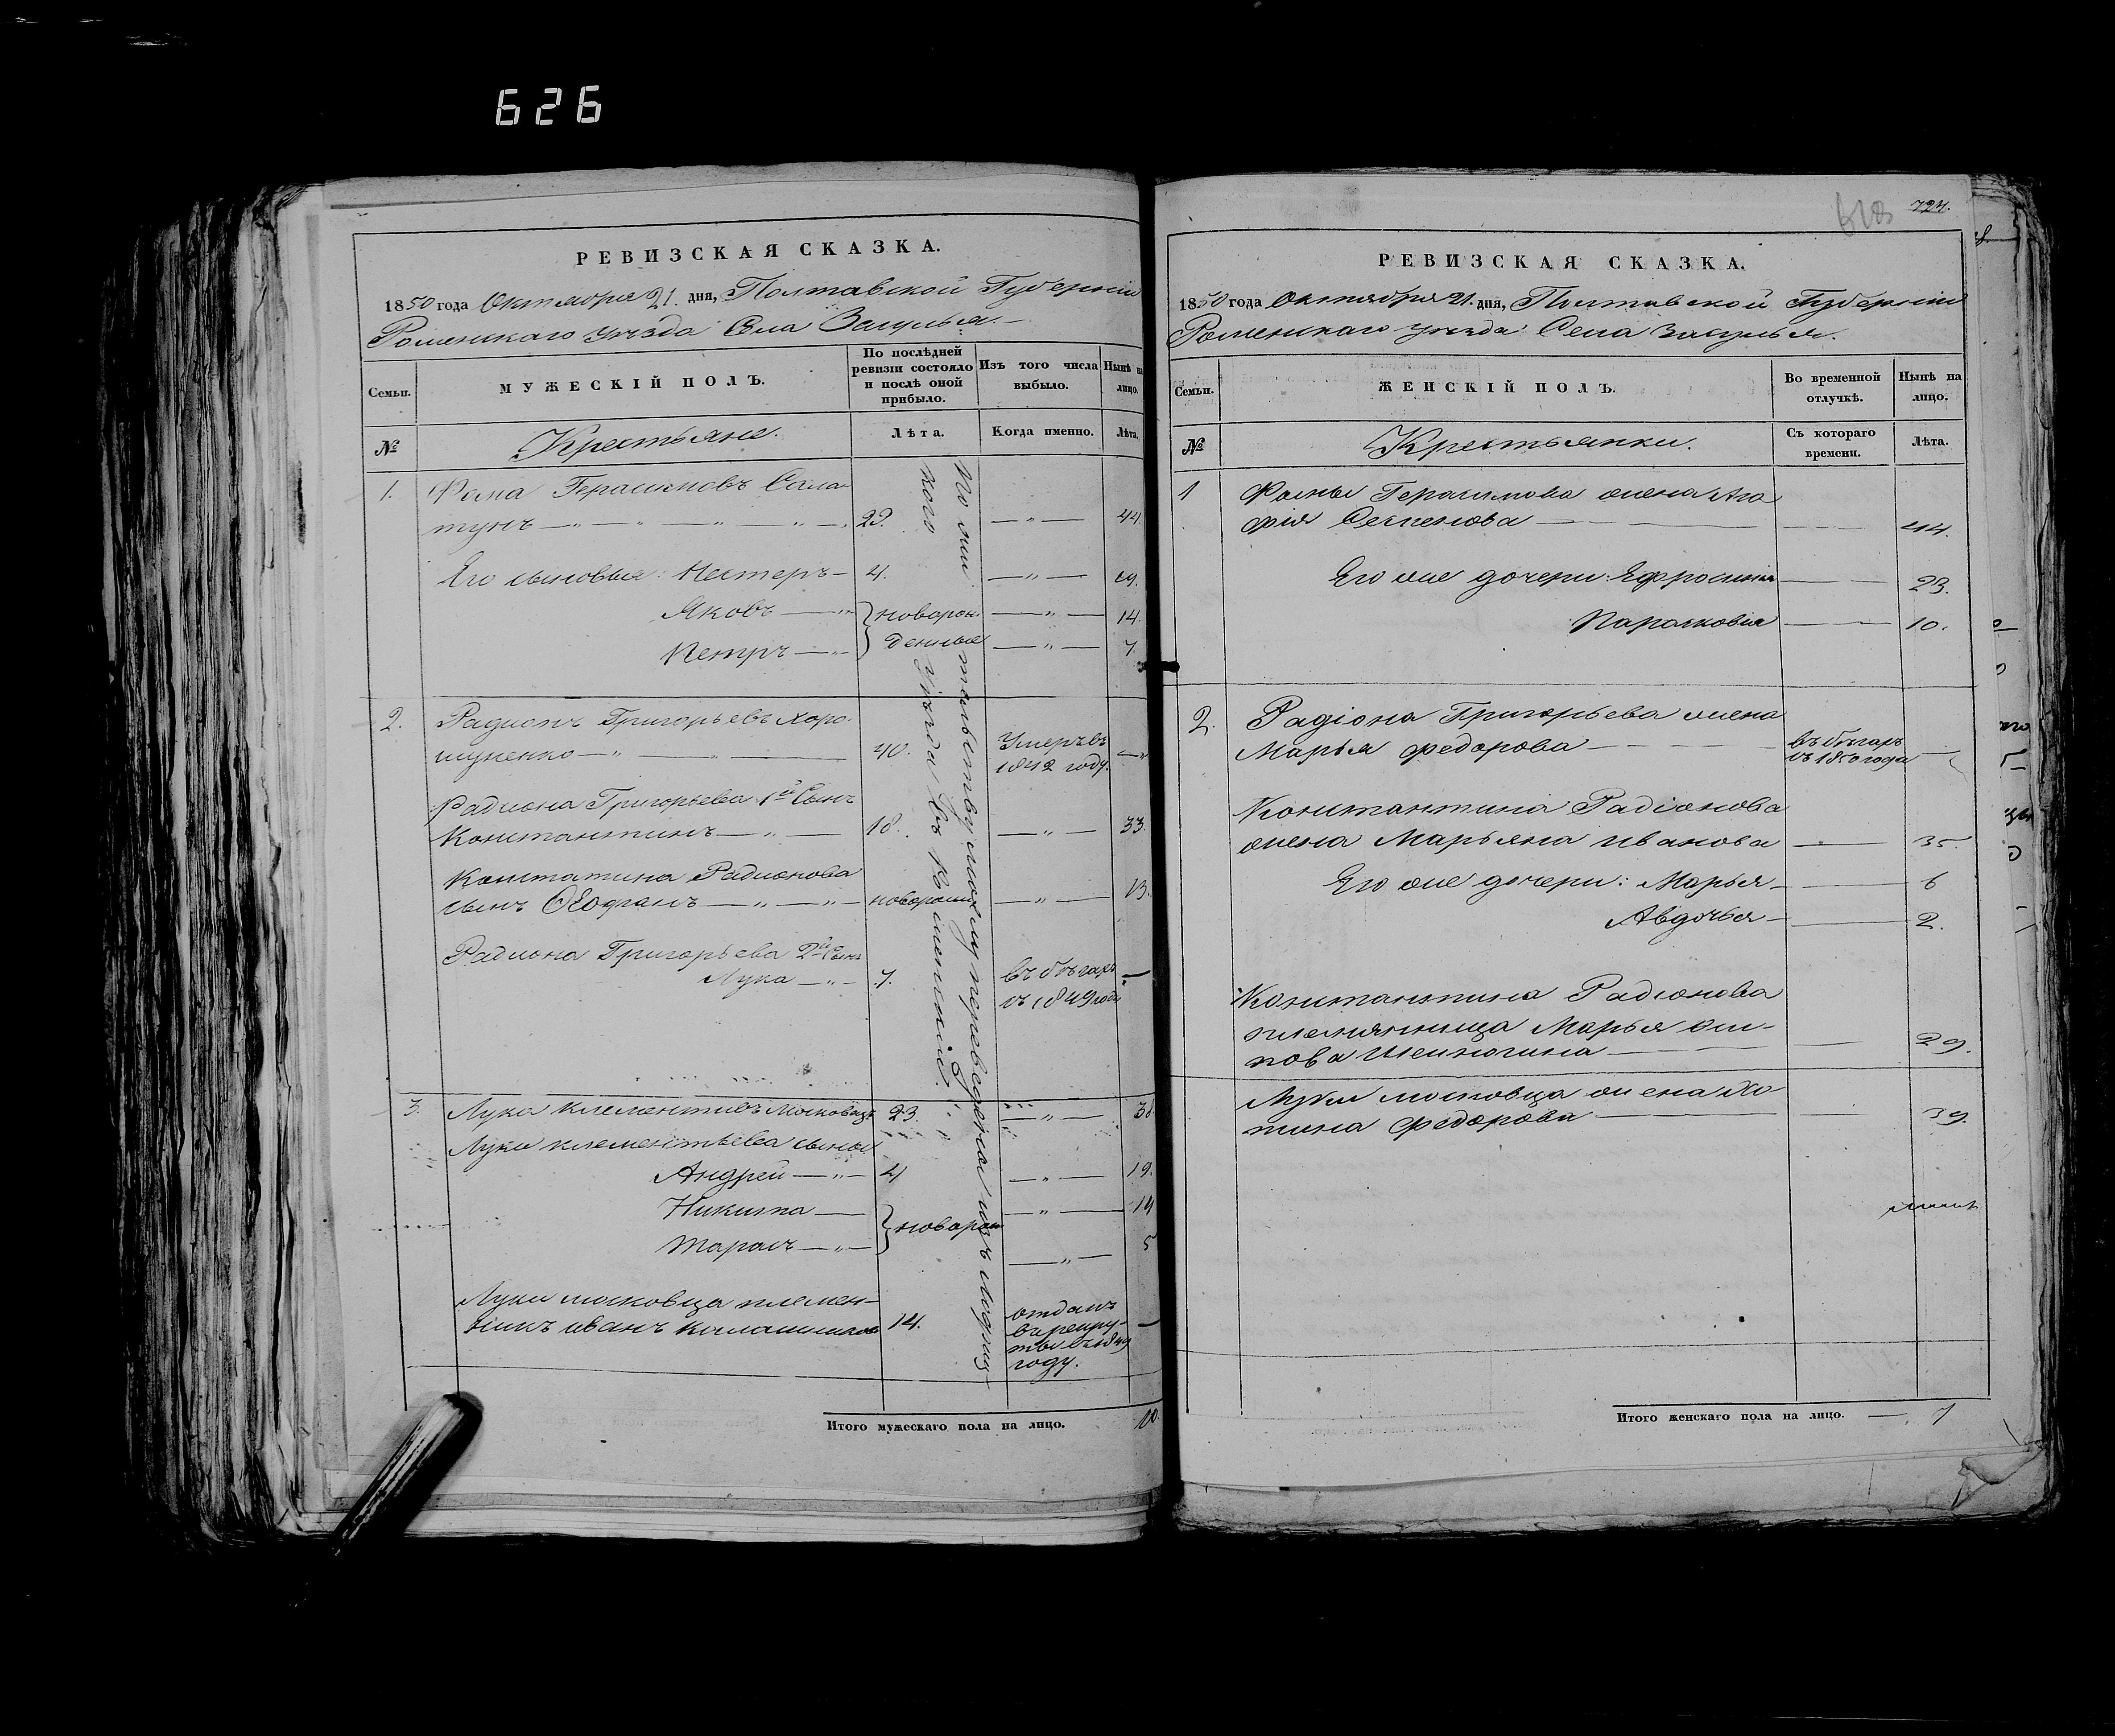 626
РЕВИЗСКАЯ СКАЗКА.
1850 года Октября 21. дня, Полтавской Губерніи
Роменскаго уѣзда Села Засулья.
Семьи.
МУЖЕСКІЙ ПОЛЪ.
По послѣдней ревизіи состояло и послѣ оной прибыло.
Изъ того числа выбыло.
Нынѣ на лицо.
№
Крестьяне.
Лѣта.
Когда именно.
Лѣта.
1. Фома Герасимовъ Сала-
тунъ 29. 44.
Его сыновья: Нестеръ 4. 19.
Яковъ новорож- 14.
Петръ денные 7.
2. Радионъ Григорьевъ Хоро-
шуненко 40. Умеръ въ 1842 году.
Радиона Григорьева 1й Сынъ
Константинъ 18. 33.
Константина Радионова
сынъ новорожд 13.
Радиона Григорьева 2й Сынъ
Лука 7. въ бѣгахъ съ 1849 года
3. Лука Клементьевъ Московецъ 23. 38
Луки Клементьева сыны
Андрей 4 19.
Никита новорож 14
Тарасъ 5
Луки Московца племен-
никъ Иванъ Калашников 14. отданъ
въ рекру-
ты въ 1849
году.
По сему переведены изъ Лохвиц-
каго уѣзда въ Роменский
Итого мужескаго пола на лицо. 10.
724.
РЕВИЗСКАЯ СКАЗКА.
1850 года Октября 21. дня, Полтавской Губерніи
Роменскаго уѣзда Села Засулья.
Семьи.
ЖЕНСКІЙ ПОЛЪ.
Во временной отлучкѣ.
Нынѣ на лицо.
№
Крестьянки.
Съ котораго времени.
Лѣта.
1 Фомы Герасимова жена Ага-
фія Семенова 44.
Его же дочери: Ефросинья 23.
Парасковья 10.
2. Радіона Григорьева жена
Марья Федорова въ бѣгахъ
съ 1850 года
Константина Радіонова
жена Марьяна Иванова 35.
Его же дочери: Марья 6
Авдотья 2.
Константина Радіонова
племянница Марья Оси-
пова 29.
Луки Московца жена Хо-
тина Федорова 39.
Итого женскаго пола на лицо. 7